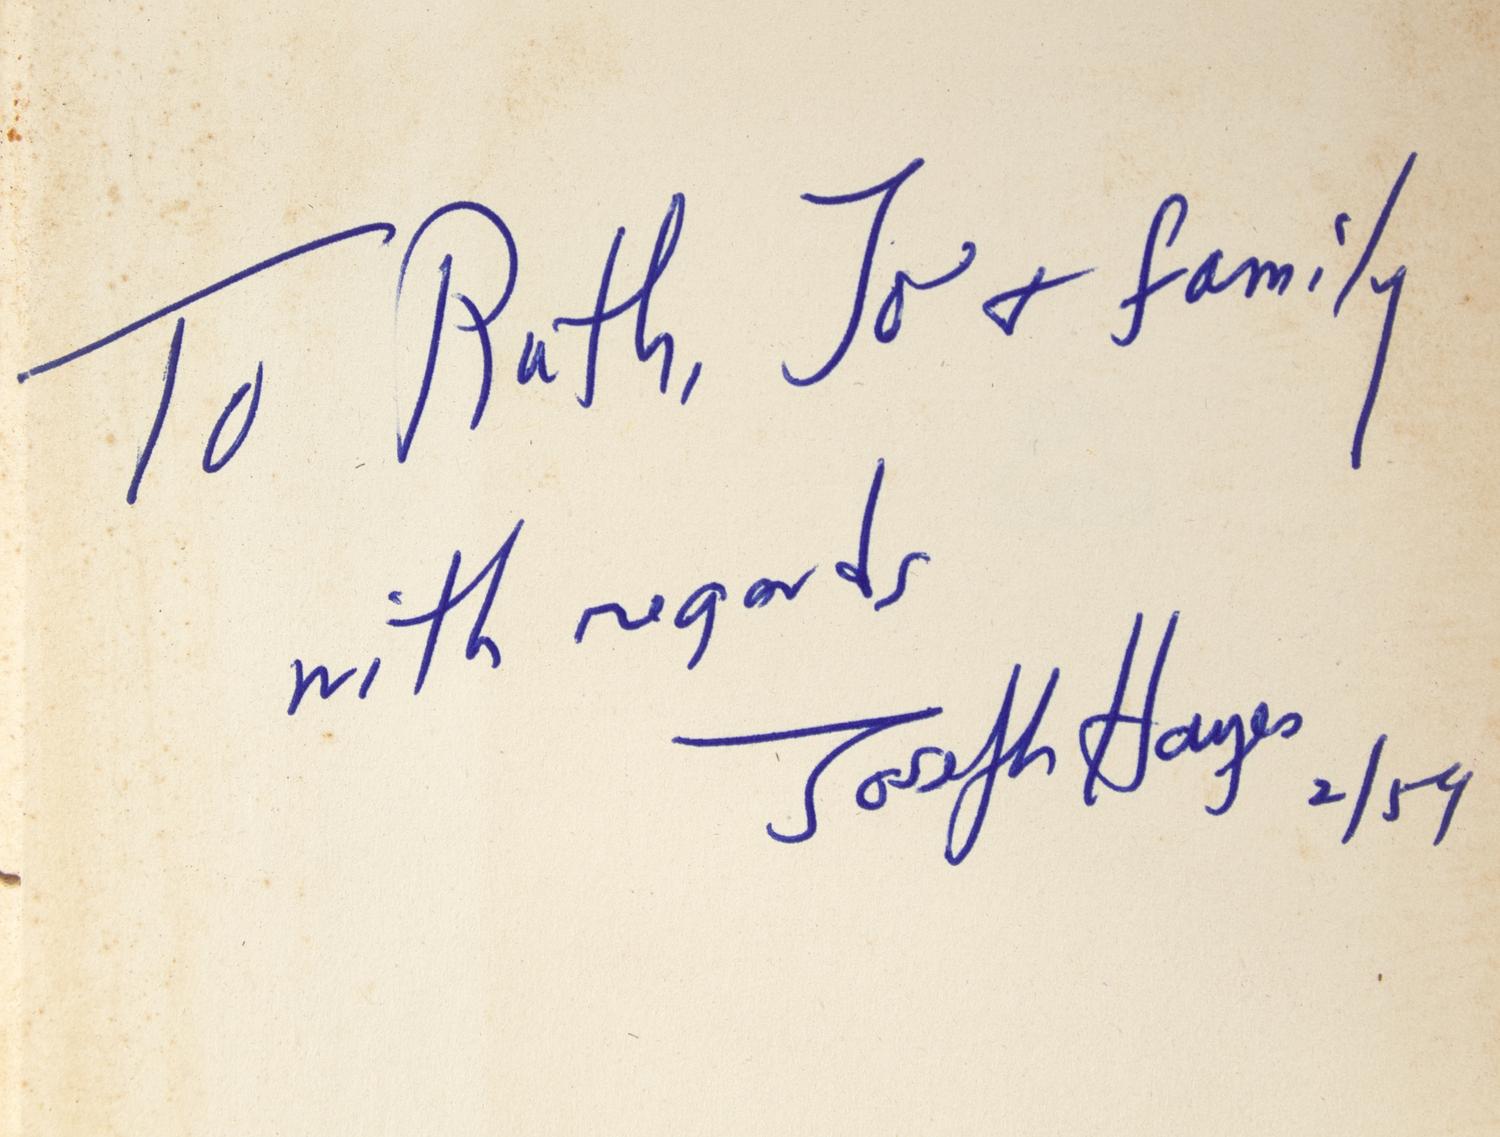 To Ruth, Jo & family
with regards
Joseph Hayes 2/54